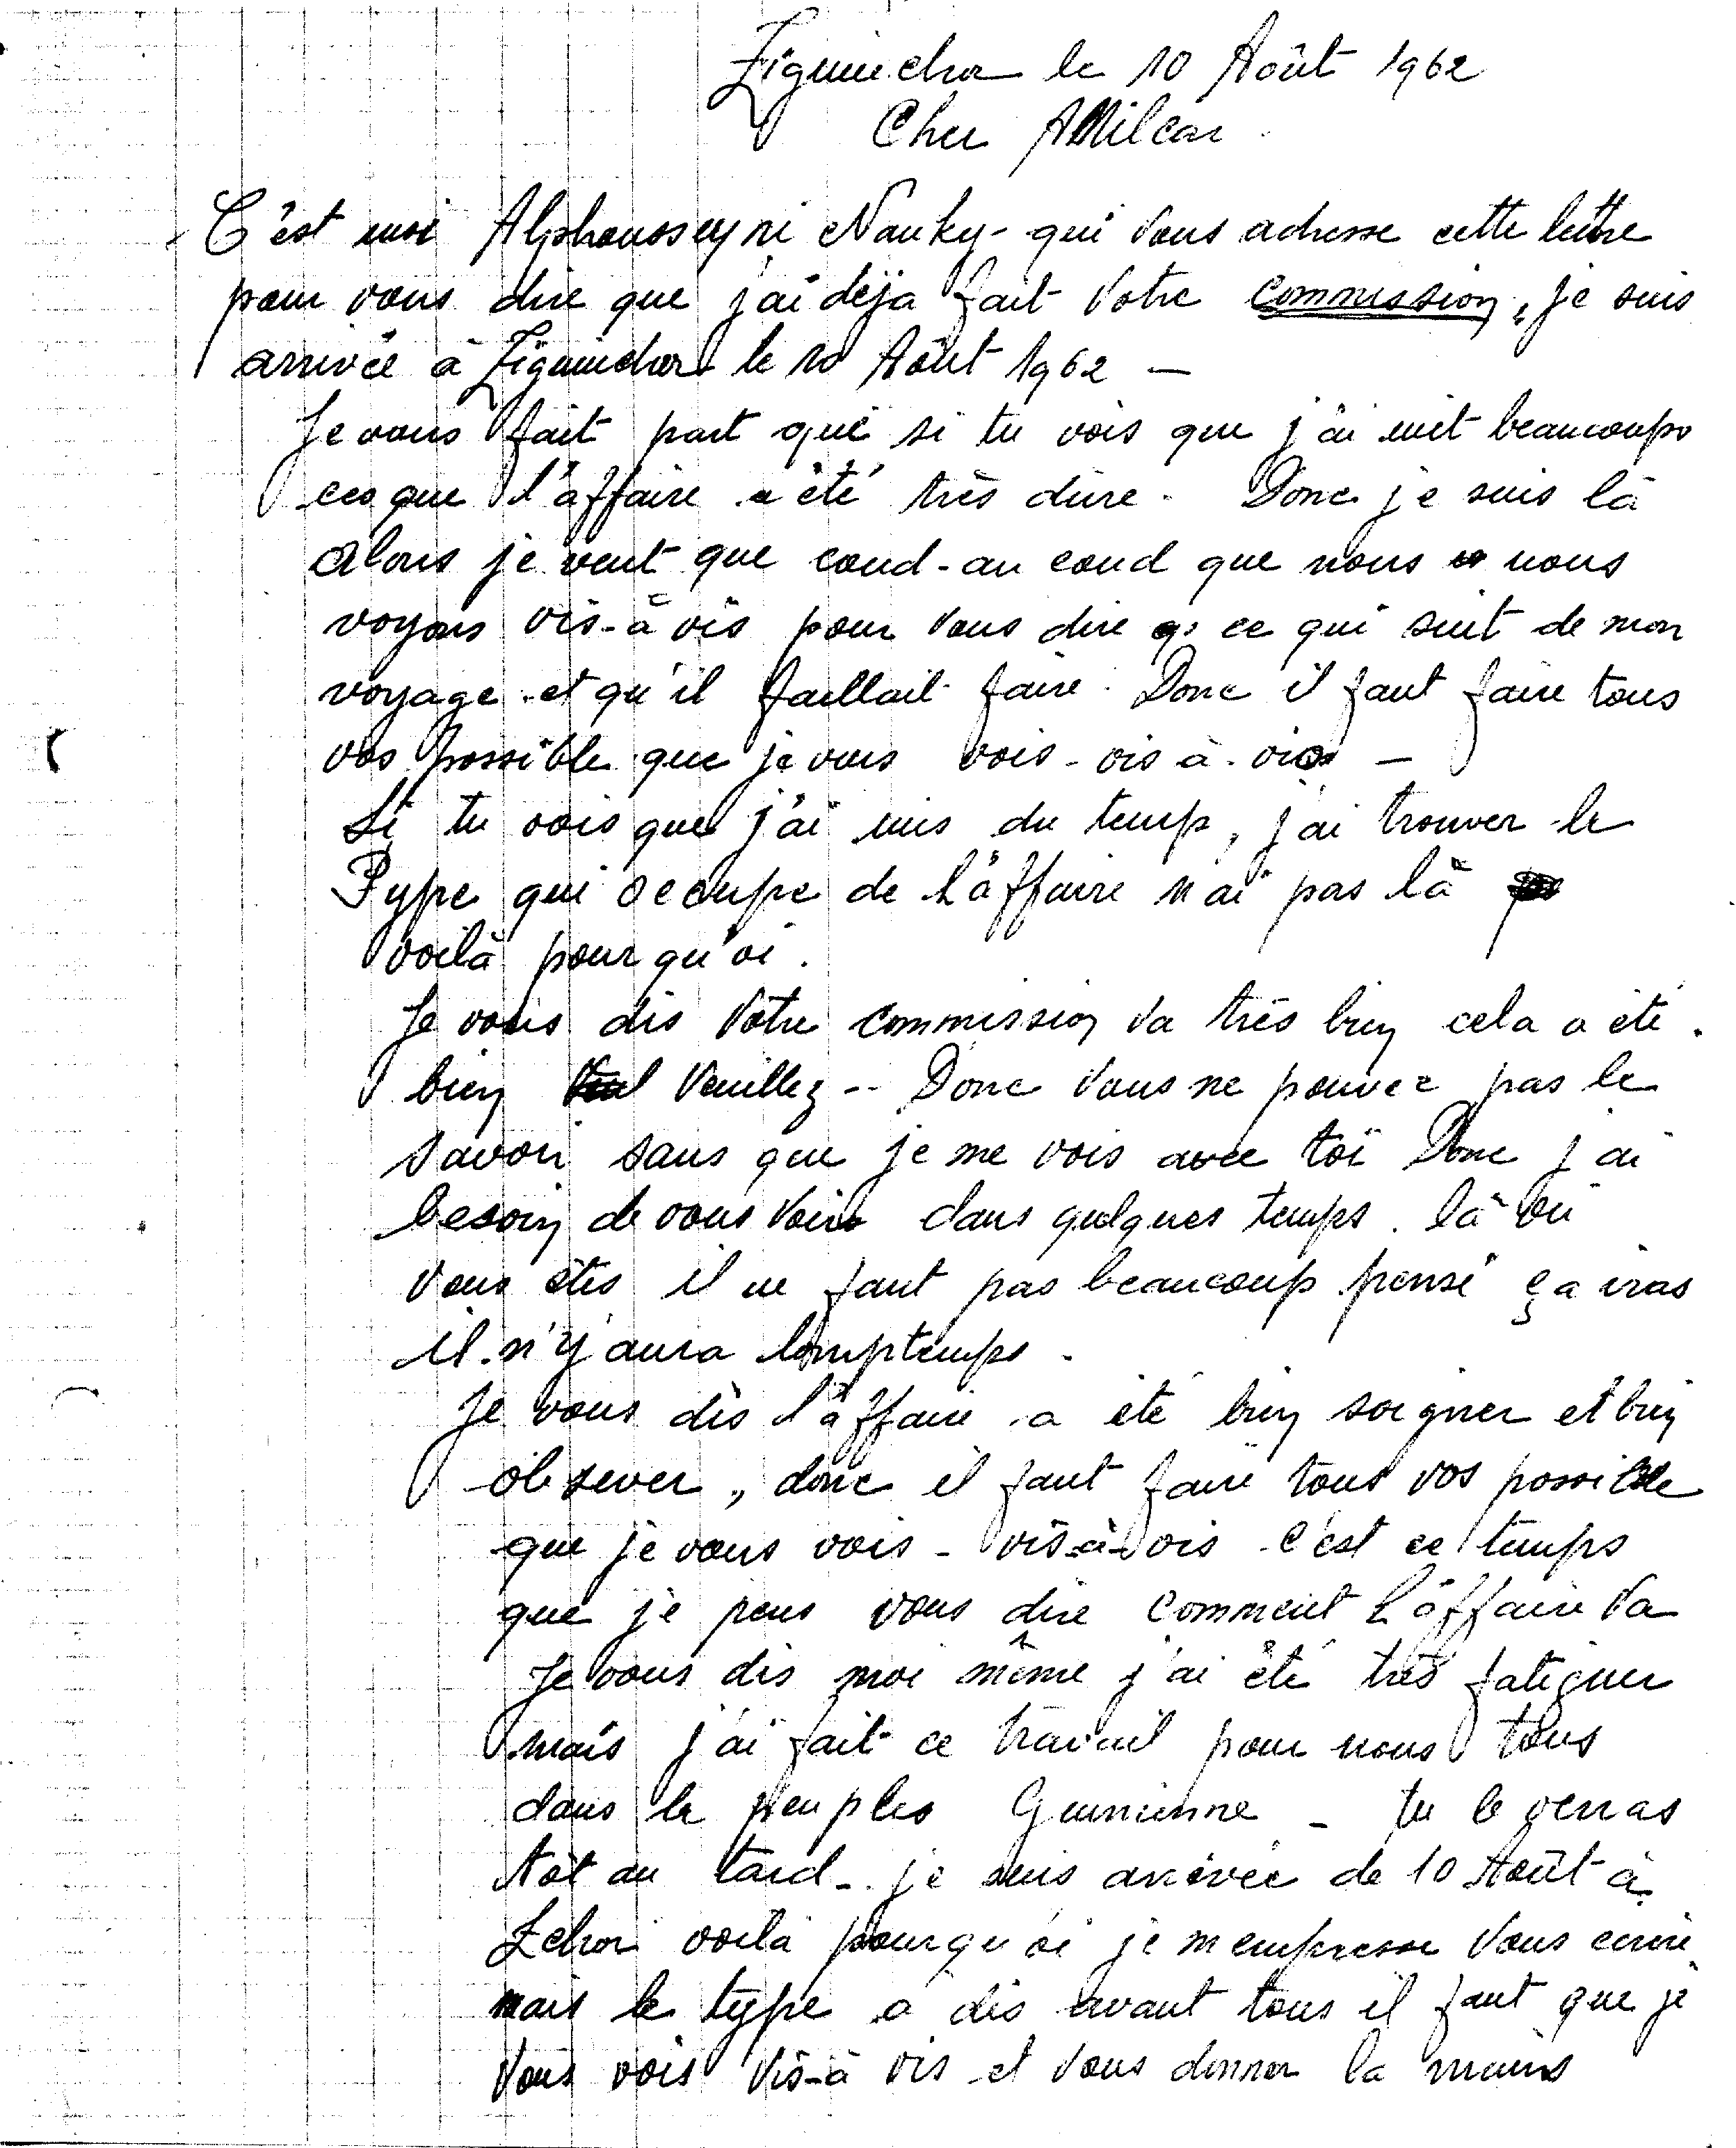 Ziguinchor le 10 Août 1962
Cher AMilcar.
C'est moi Alphousseyni Nanky - qui vous adresse cette lettre
pour vous dire que j'ai déja fait votre commission, je suis
arrivée à Ziguinchor le 10 Août 1962 —
Je vous fait part que si tu vois que j'ai mit beaucoups
ces que l'affaire a été très dure. Donc je suis là
alors je veut que coud-au coud que nous nous
voyons vis-à vis pour vous dire ce qui suit de mon
voyage et qu'il faillait faire. Donc il faut faire tous
vos possible que je vous vois - vis à - vis —
Si tu vois que j'ai mis du temp, j'ai trouver le
Type qui occupe de l'affaire n'ai pas là
voilà pour qu'oi.
Je vous dis votre commission va très bien cela a été.
bien Veuillez -- Donc vous ne pouvez pas le
savoir sans que je me vois avec toi Donc j'ai
besoin de vous voir dans quelques temps. là où
vous êtes il ne faut pas beaucoup pensé ça iras
il n'y aura lomptemps.
Je vous dis l'affaire a été bien soigner et bien
obsever, donc il faut faire tous vos possible
que je vous vois - vis-à-vis c'est ce temps
que je peus vous dire comment l'affaire va
Je vous dis moi même j'ai été très fatiguer
mais j'ai fait ce travail pour nous tous
dans le peuples Guinienne - tu le verras
tôt au tard - je suis arrivée de 10 Août à
Zchor voilà pourqu'oi je m'empresse vous ecrire
mais le type a dis avant tous il faut que je
vous vois vis-à vis et vous donner la mains